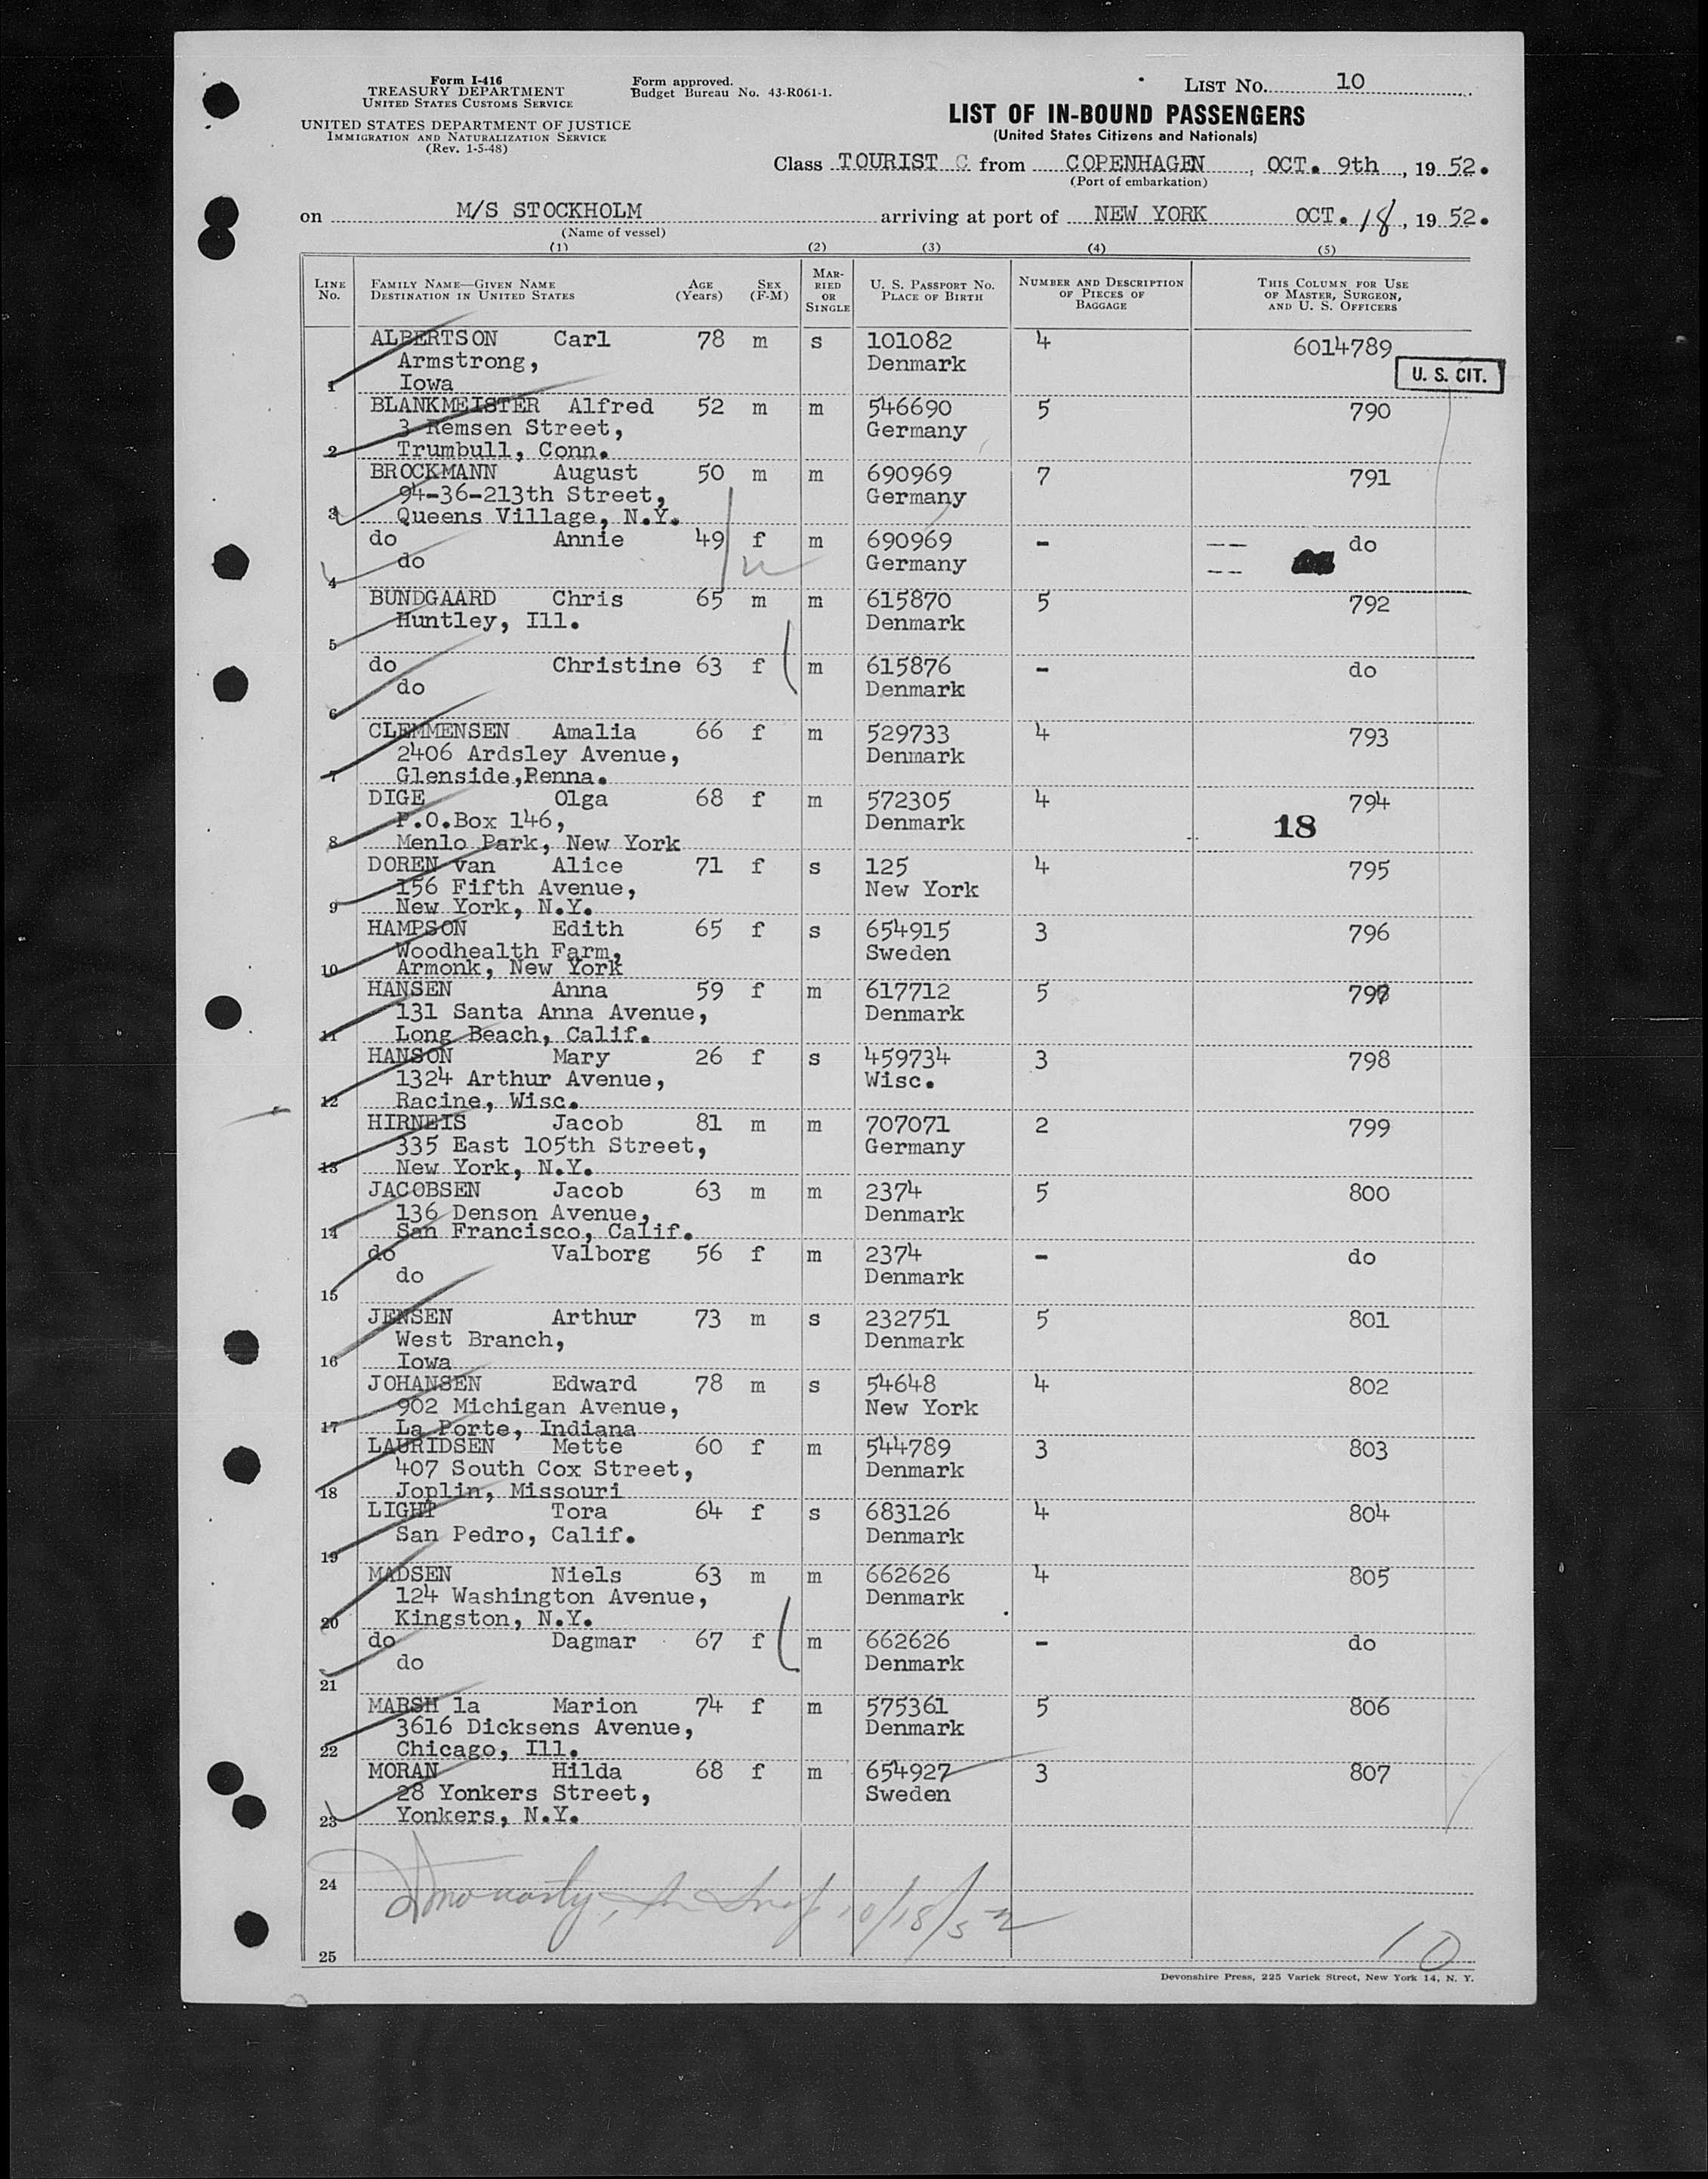 Form I-416
TREASURY DEPARTMENT
UNITED STATES CUSTOMS SERVICE
UNITED STATES DEPARTMENT OF JUSTICE
IMMIGRATION AND NATURALIZATION SERVICE
(Rev. 1-5-48)
Form approved.
Budget Bureau No. 43-R061-1.
LIST NO. 10
LIST OF IN-BOUND PASSENGERS
(United States Citizens and Nationals)
Class TOURIST C from COPENHAGEN, OCT. 9th, 1952.
(Port of embarkation)
on M/S STOCKHOLM arriving at port of NEW YORK OCT. 18, 1952.
(Name of vessel)
(1) (2) (3) (4) (5)
LINE No.
FAMILY NAME—GIVEN NAME
DESTINATION IN UNITED STATES
AGE (Years)
SEX (F-M)
MARRIED OR SINGLE
U. S. PASSPORT NO.
PLACE OF BIRTH
NUMBER AND DESCRIPTION OF PIECES OF BAGGAGE
THIS COLUMN FOR USE OF MASTER, SURGEON, AND U. S. OFFICERS
ALBERTSON Carl 78 m s 101082 4 6014789
Armstrong, Denmark U. S. CIT.
1 Iowa
BLANKMEISTER Alfred 52 m m 546690 5 790
3 Remsen Street, Germany
2 Trumbull, Conn.
BROCKMANN August 50 m m 690969 7 791
94-36-213th Street, Germany
3 Queens Village, N.Y.
do Annie 49 f m 690969 - do
do Germany
4
BUNDGAARD Chris 65 m m 615870 5 792
Huntley, Ill. Denmark
5
do Christine 63 f m 615876 - do
do Denmark
6
CLEMMENSEN Amalia 66 f m 529733 4 793
2406 Ardsley Avenue, Denmark
7 Glenside,Penna.
DIGE Olga 68 f m 572305 4 794
P.O.Box 146, Denmark 18
8 Menlo Park, New York
DOREN van Alice 71 f s 125 4 795
156 Fifth Avenue, New York
9 New York, N.Y.
HAMPSON Edith 65 f s 654915 3 796
Woodhealth Farm, Sweden
10 Armonk, New York
HANSEN Anna 59 f m 617712 5 797
131 Santa Anna Avenue, Denmark
11 Long Beach, Calif.
HANSON Mary 26 f s 459734 3 798
1324 Arthur Avenue, Wisc.
12 Racine, Wisc.
HIRNEIS Jacob 81 m m 707071 2 799
335 East 105th Street, Germany
13 New York, N.Y.
JACOBSEN Jacob 63 m m 2374 5 800
136 Denson Avenue, Denmark
14 San Francisco, Calif.
do Valborg 56 f m 2374 - do
do Denmark
15
JENSEN Arthur 73 m s 232751 5 801
West Branch, Denmark
16 Iowa
JOHANSEN Edward 78 m s 54648 4 802
902 Michigan Avenue, New York
17 La Porte, Indiana
LAURIDSEN Mette 60 f m 544789 3 803
407 South Cox Street, Denmark
18 Joplin, Missouri
LIGHT Tora 64 f s 683126 4 804
San Pedro, Calif. Denmark
19
MADSEN Niels 63 m m 662626 4 805
124 Washington Avenue, Denmark
20 Kingston, N.Y.
do Dagmar 67 f m 662626 - do
do Denmark
21
MARSH la Marion 74 f m 575361 5 806
3616 Dicksens Avenue, Denmark
22 Chicago, Ill.
MORAN Hilda 68 f m 654927 3 807
28 Yonkers Street, Sweden
23 Yonkers, N.Y.
24
10/18/52
25 10
Devonshire Press, 225 Varick Street, New York 14, N. Y.